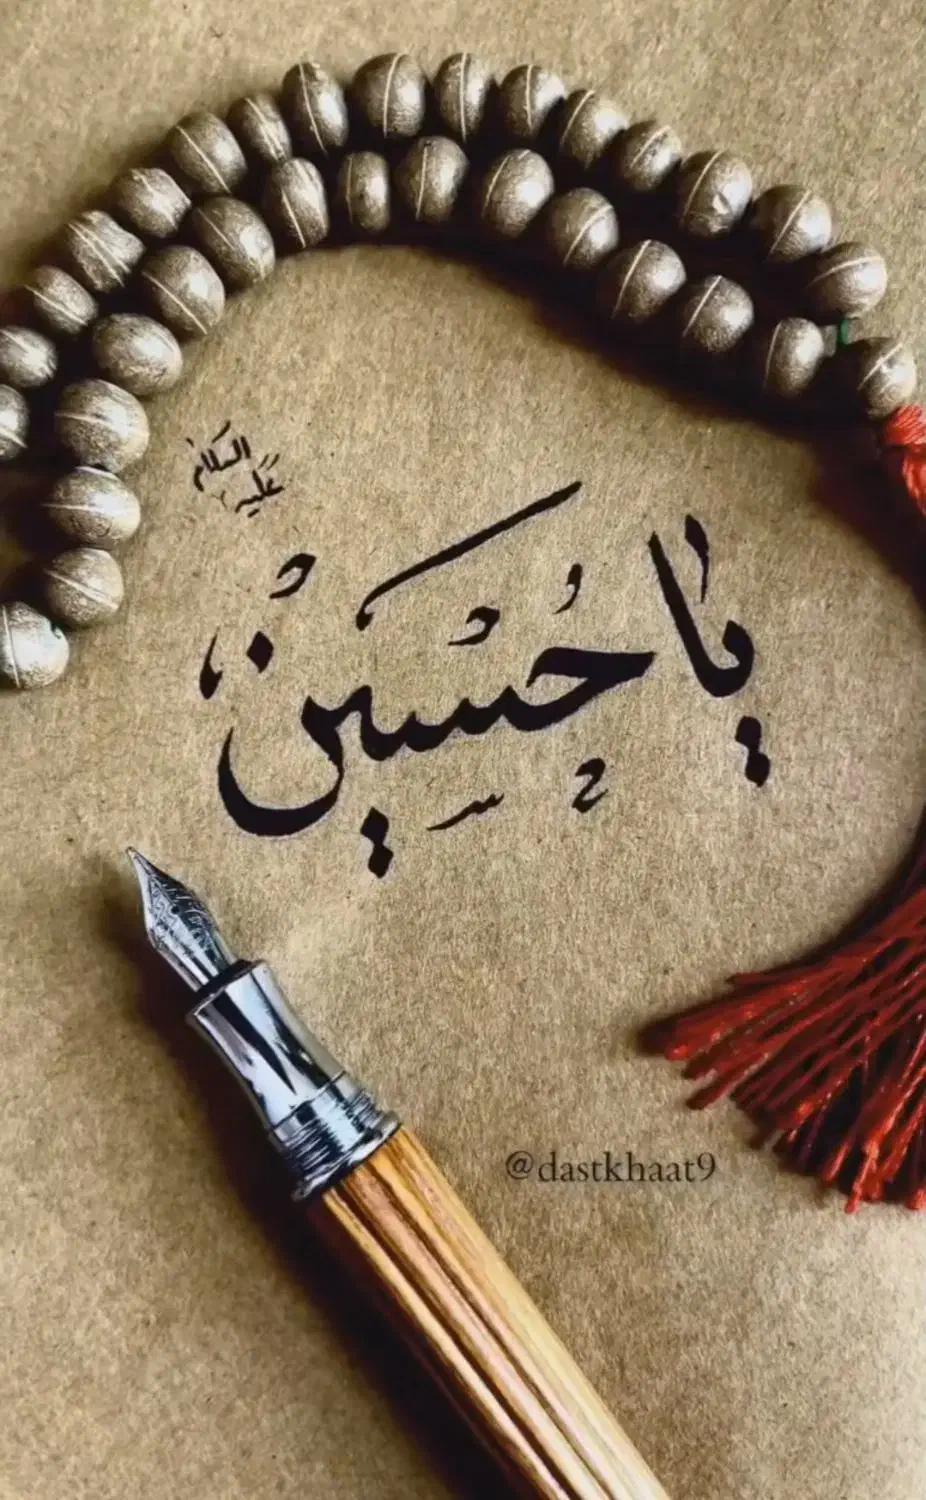 عَلَيْهِ السَّلَام
يَا حُسَيْنْ
@dastkhaat9